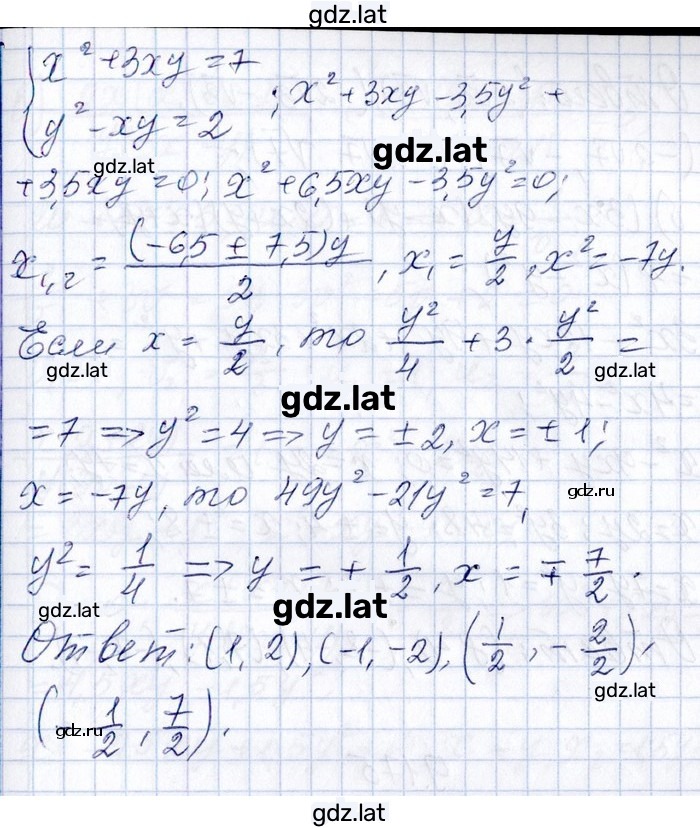 gdz.lat
{x² + 3xy = 7
{y² - xy = 2
; x² + 3xy - 3,5y² +
gdz.lat
gdz.lat
+ 3,5xy = 0; x² + 6,5xy - 3,5y² = 0;
x₁,₂ = (-6,5 ± 7,5)y / 2, x₁ = y/2, x² = -7y.
Если x = y/2, то y²/4 + 3 · y²/2 =
gdz.lat
gdz.lat
gdz.lat
= 7 => y² = 4 => y = ± 2, x = ± 1;
x = -7y, то 49y² - 21y² = 7,
gdz.ru
y² = 1/4 => y = + 1/2, x = ∓ 7/2.
gdz.lat
gdz.lat
Ответ: (1, 2), (-1, -2), (1/2, - 2/2),
gdz.lat
(- 1/2, 7/2).
gdz.ru
gdz.lat